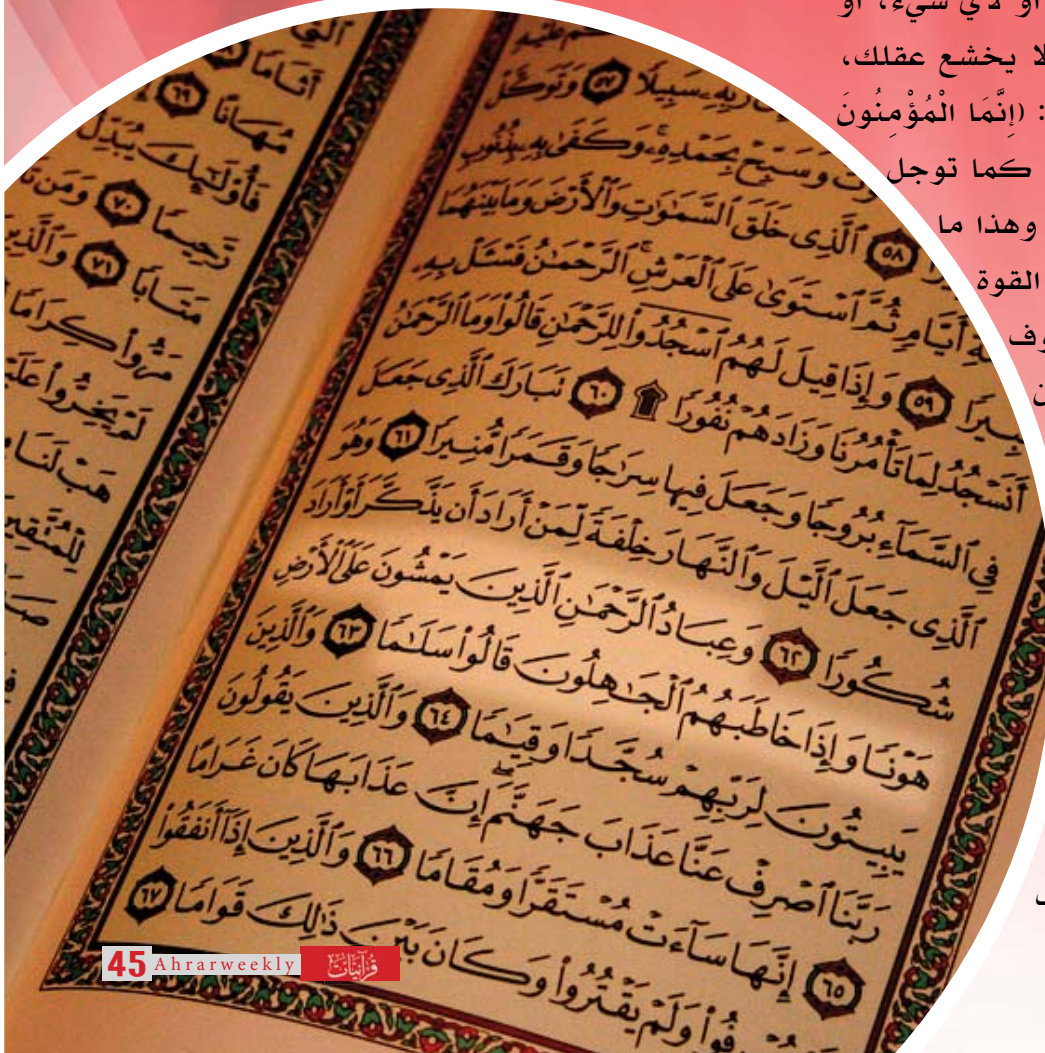 أو لأي شيء، أو
لا يخشع عقلك،
: (إِنَّمَا الْمُؤْمِنُونَ
كما توجل
وهذا ما
القوة
رَبِّهِۦ سَبِيلًا ٥٧ وَتَوَكَّلْ
وَسَبِّحْ بِحَمْدِهِۦ وَكَفَىٰ بِهِۦ بِذُنُوبِ
٥٨ ٱلَّذِى خَلَقَ ٱلسَّمَٰوَٰتِ وَٱلْأَرْضَ وَمَا بَيْنَهُمَا
أَيَّامٍ ثُمَّ ٱسْتَوَىٰ عَلَى ٱلْعَرْشِ ۚ ٱلرَّحْمَٰنُ فَسْـَٔلْ بِهِۦ
٥٩ وَإِذَا قِيلَ لَهُمُ ٱسْجُدُوا۟ لِلرَّحْمَٰنِ قَالُوا۟ وَمَا ٱلرَّحْمَٰنُ
أَنَسْجُدُ لِمَا تَأْمُرُنَا وَزَادَهُمْ نُفُورًا ۩ ٦٠ تَبَارَكَ ٱلَّذِى جَعَلَ
فِى ٱلسَّمَآءِ بُرُوجًا وَجَعَلَ فِيهَا سِرَٰجًا وَقَمَرًا مُّنِيرًا ٦١ وَهُوَ
ٱلَّذِى جَعَلَ ٱلَّيْلَ وَٱلنَّهَارَ خِلْفَةً لِّمَنْ أَرَادَ أَن يَذَّكَّرَ أَوْ أَرَادَ
شُكُورًا ٦٢ وَعِبَادُ ٱلرَّحْمَٰنِ ٱلَّذِينَ يَمْشُونَ عَلَى ٱلْأَرْضِ
هَوْنًا وَإِذَا خَاطَبَهُمُ ٱلْجَٰهِلُونَ قَالُوا۟ سَلَٰمًا ٦٣ وَٱلَّذِينَ
يَبِيتُونَ لِرَبِّهِمْ سُجَّدًا وَقِيَٰمًا ٦٤ وَٱلَّذِينَ يَقُولُونَ
رَبَّنَا ٱصْرِفْ عَنَّا عَذَابَ جَهَنَّمَ ۖ إِنَّ عَذَابَهَا كَانَ غَرَامًا
٦٥ إِنَّهَا سَآءَتْ مُسْتَقَرًّا وَمُقَامًا ٦٦ وَٱلَّذِينَ إِذَآ أَنفَقُوا۟
وَلَمْ يَقْتُرُوا۟ وَكَانَ بَيْنَ ذَٰلِكَ قَوَامًا ٦٧
أَثَامًا
مُهَانًا ٦٩
فَأُو۟لَٰٓئِكَ يُبَدِّلُ
رَّحِيمًا ٧٠ وَمَن
مَتَابًا ٧١ وَٱلَّذِينَ
مَرُّوا۟ كِرَامًا
لَمْ يَخِرُّوا۟
هَبْ لَنَا
لِلْمُتَّقِينَ
45 Ahrarweekly قرآنيات